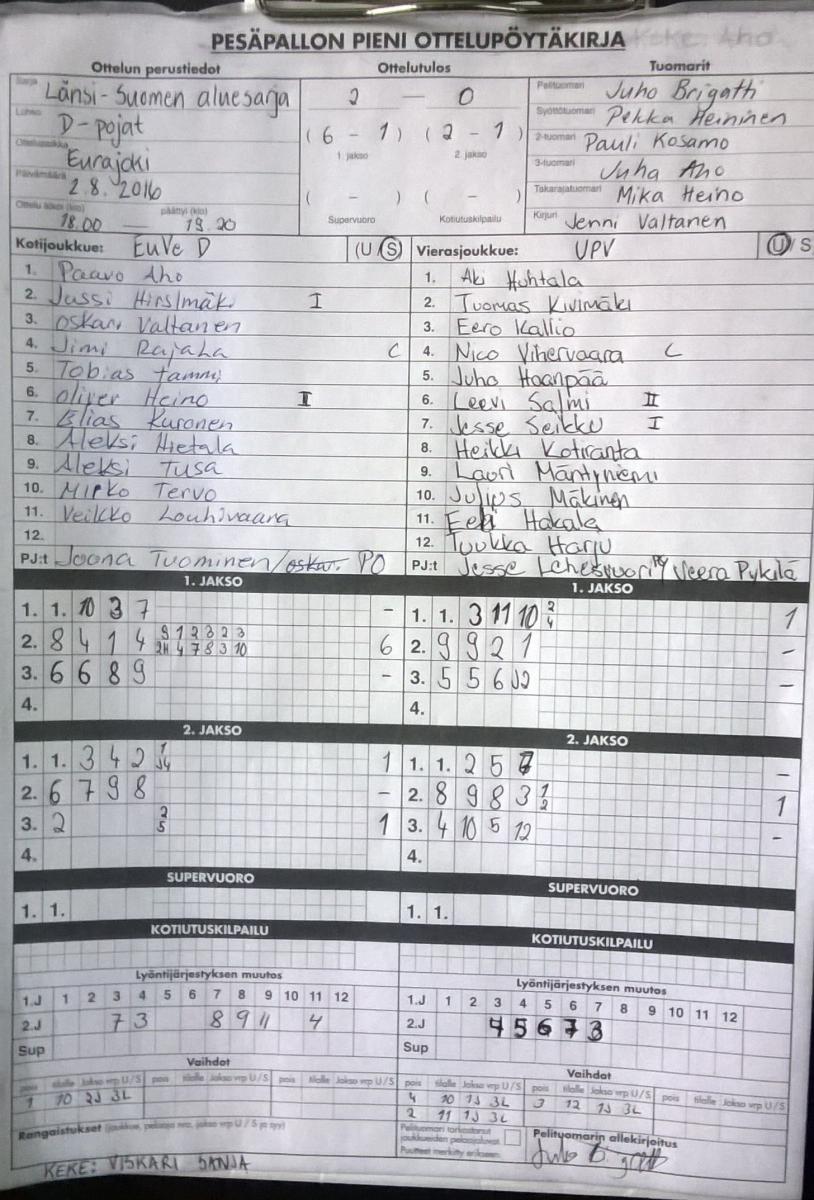 PESÄPALLON PIENI OTTELUPÖYTÄKIRJA
Ottelun perustiedot
Ottelutulos
Tuomarit
Sarja Länsi-Suomen aluesarja
Lohko D-pojat
Eurajoki
Päivämäärä 2.8.2016
Ottelu alkoi (klo) 18.00 — päättyi (klo) 19.20
2 — 0
(6 - 1) (2 - 1)
1. jakso 2. jakso
( - ) ( - )
Supervuoro Kotiutuskilpailu
Pelituomari Juho Brigatti
Syöttötuomari Pekka Heininen
2-tuomari Pauli Kosamo
3-tuomari Juha Aho
Takarajatuomari Mika Heino
Kirjuri Jenni Valtanen
Kotijoukkue: EuVe D (U/S)
1. Paavo Aho
2. Jussi Hirsimäki I
3. Oskari Valtanen
4. Jimi Rajala C
5. Tobias Tammi
6. Oliver Heino II
7. Elias Kuronen
8. Aleksi Hietala
9. Aleksi Tusa
10. Mirko Tervo
11. Veikko Louhivaara
12.
PJ:t Joona Tuominen/ PO
Vierasjoukkue: UPV U/S
1. Aki Huhtala
2. Tuomas Kivimäki
3. Eero Kallio
4. Nico Vihervaara C
5. Juho Haanpää
6. Leevi Salmi II
7. Jesse Seikku I
8. Heikki Kotiranta
9. Lauri Mäntyniemi
10. Julius Mäkinen
11. Eeli Hakala
12. Tuukka Harju
PJ:t Jesse Lehesvuori Veera Pykilä
1. JAKSO
1. 1. 10 3 7 -
2. 8 4 1 4 9 1 2 8 2 3 6
4 7 8 3 10
3. 6 6 8 9 -
4.
1. JAKSO
1. 1. 3 11 10 2 1
4
2. 9 9 2 1 -
3. 5 5 6 -
4.
2. JAKSO
1. 1. 3 4 2 1 1
2. 6 7 9 8 -
3. 2 2 1
5
4.
2. JAKSO
1. 1. 2 5 -
2. 8 9 8 3 1 1
2
3. 4 10 5 12 -
4.
SUPERVUORO
1. 1.
SUPERVUORO
1. 1.
KOTIUTUSKILPAILU
KOTIUTUSKILPAILU
Lyöntijärjestyksen muutos
1.J 1 2 3 4 5 6 7 8 9 10 11 12
2.J 7 3 8 9 11 4
Sup
Vaihdot
pois tilalle Jakso vrp U/S pois tilalle Jakso vrp U/S pois tilalle Jakso vrp U/S
1 10 2J 3L
Rangaistukset (joukkue, pelaaja nro, jakso vrp U/S ja syy)
KEKE: VISKARI SANJA
Lyöntijärjestyksen muutos
1.J 1 2 3 4 5 6 7 8 9 10 11 12
2.J 4 5 6 7 3
Sup
Vaihdot
pois tilalle Jakso vrp U/S pois tilalle Jakso vrp U/S pois tilalle Jakso vrp U/S
4 10 1J 3L 3 12 1J 3L
2 11 1J 3L
Pelituomari tarkastanut
joukkueiden pelaajaluvat
Puutteet merkitty erikseen
Pelituomarin allekirjoitus